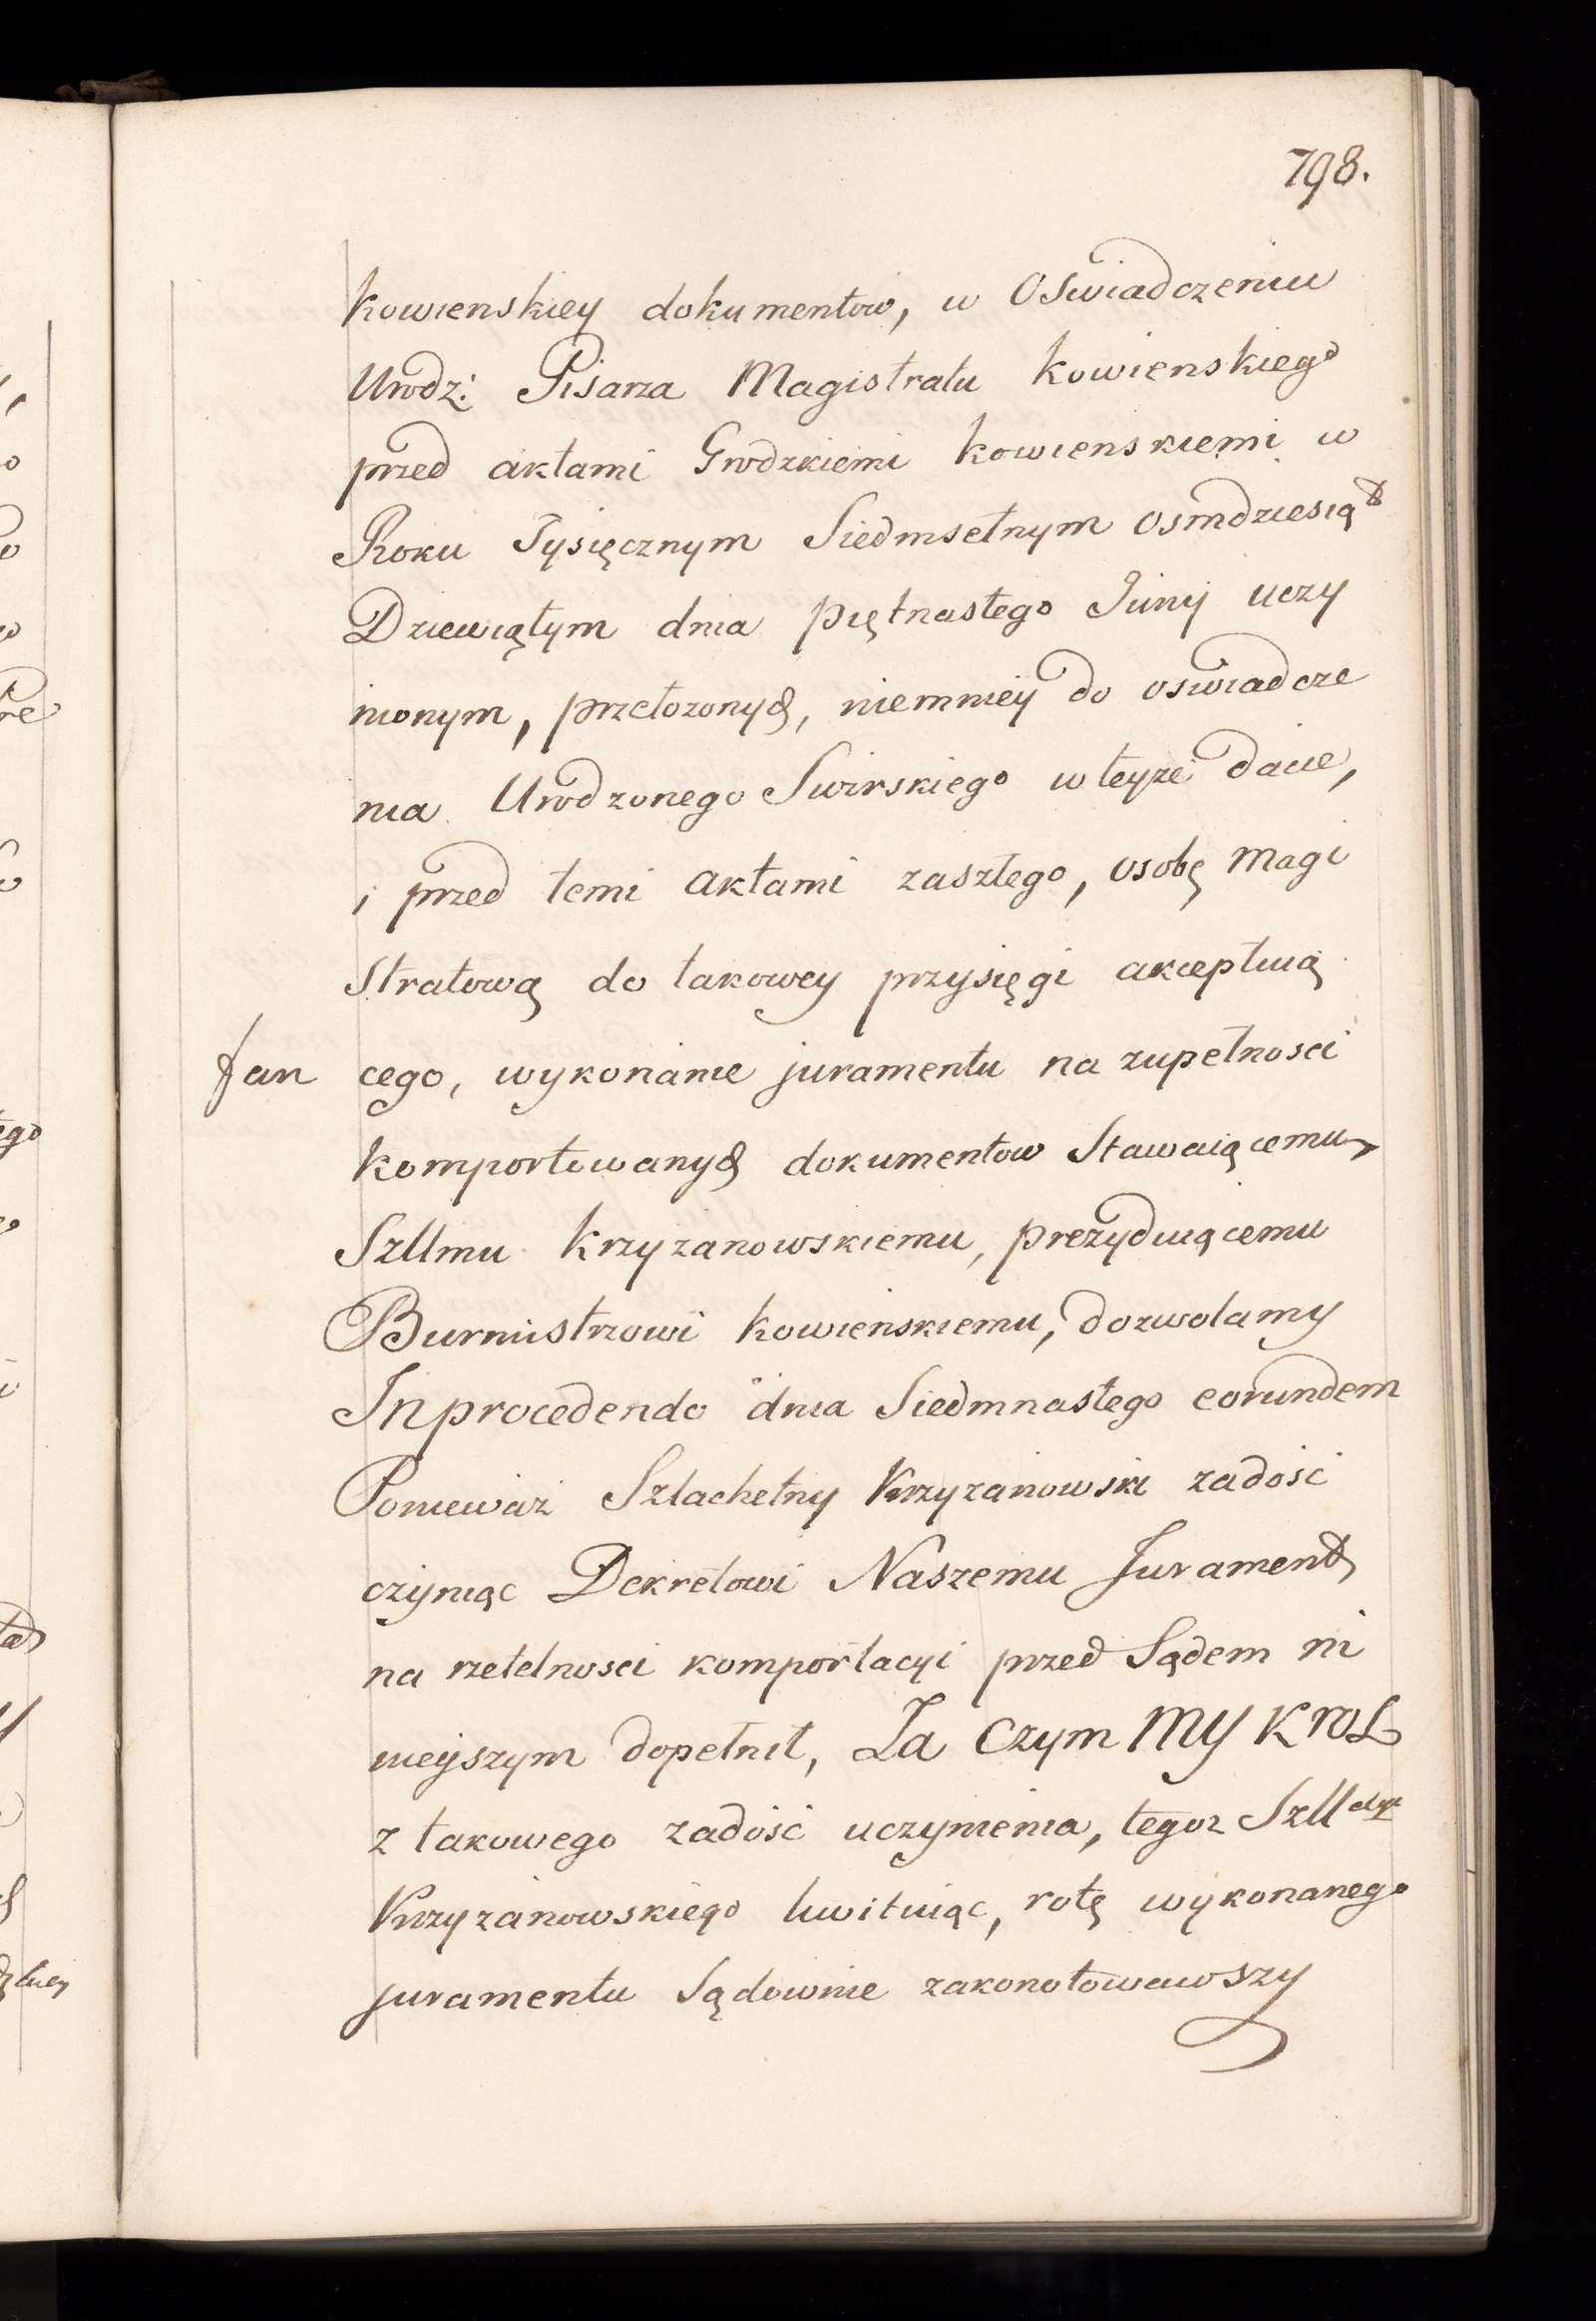 798.
kowienskiey dokumentow, w Oswiadczeniu
Urodz: Pisarza Magistratu kowienskiego
przed aktami Grodzkiemi kowienskiemi w
Roku Tysięcznym Siedmsetnym osmdziesiąt
Dziewiątym dnia piętnastego Junij uczy
nionym, przełożonych, niemniey do oswiadcze
nia Urodzonego Swirskiego w teyże dacie,
i przed temi aktami zaszłego, osobę Magi
Stratową do takowey przysięgi akceptuią
cego, wykonanie juramentu na zupełnosci
komportowanych dokumentow Stawaiącemu
Szllmu Krzyżanowskiemu, prezyduiącemu
Burmistrzowi kowienskiemu, dozwolamy
Inprocedendo dnia Siedmnastego eorundem
Ponieważ Szlachetny Krzyżanowski zadość
czyniąc Dekretowi Naszemu Jurament
na rzetelnosci komportacyi przed Sądem ni
nieyszym dopełnił, Za czym MY KROL
z takowego zadość uczynienia, tegoż
Krzyżanowskiego kwituiąc, rotę wykonanego
juramentu Sądownie zakonotowawszy